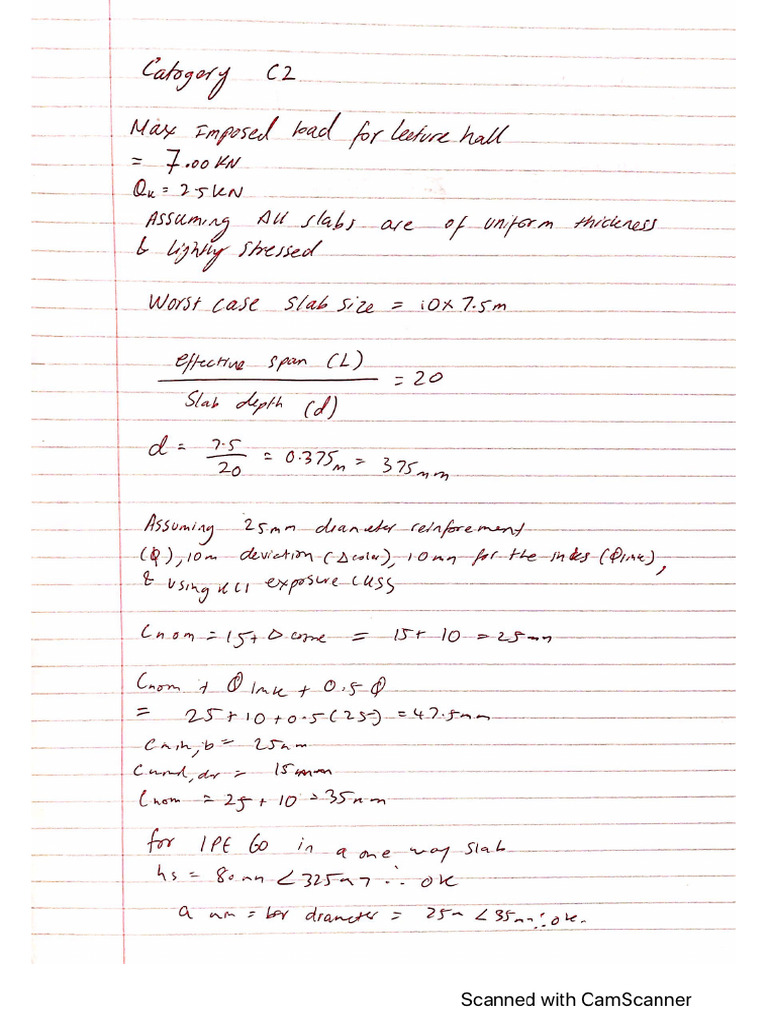 Catogory C2
Max Imposed load for lecture hall
= 7.00 KN
Qk = 2.5 KN
Assuming All slabs are of uniform thickness
& lightly stressed
Worst case slab size = 10 x 7.5m
effective span (L) / Slab depth (d) = 20
d = 7.5 / 20 = 0.375m = 375mm
Assuming 25mm diameter reinforement
(Φ), 10m deviction (Δ), 10mm for the (Φlink),
& using XC1 exposure class
Cnom = 15 + Δ = 15 + 10 = 25mm
Cnom + Φlink + 0.5 Φ
= 25 + 10 + 0.5(25) = 47.5mm
Cmin,b = 25mm
= 15mm
Cnom = 25 + 10 = 35mm
for 60 in a one way slab
hs = 80mm < 325mm ∴ ok
a = bar diameter = 25m < 35mm ∴ ok.
Scanned with CamScanner